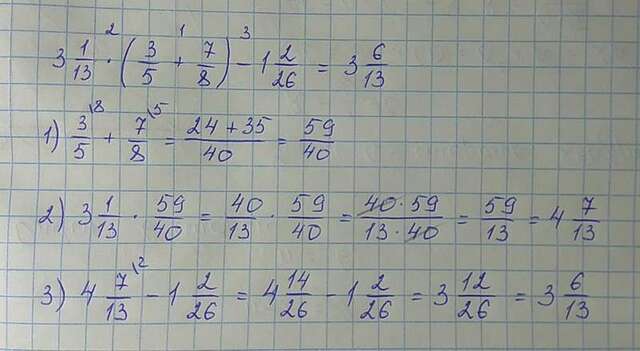 3 1/13 · (3/5 + 7/8) - 1 2/26 = 3 6/13
1) 3/5 \8 + 7/8 \5 = (24 + 35)/40 = 59/40
2) 3 1/13 · 59/40 = 40/13 · 59/40 = (40 · 59)/(13 · 40) = 59/13 = 4 7/13
3) 4 7/13 \2 - 1 2/26 = 4 14/26 - 1 2/26 = 3 12/26 = 3 6/13